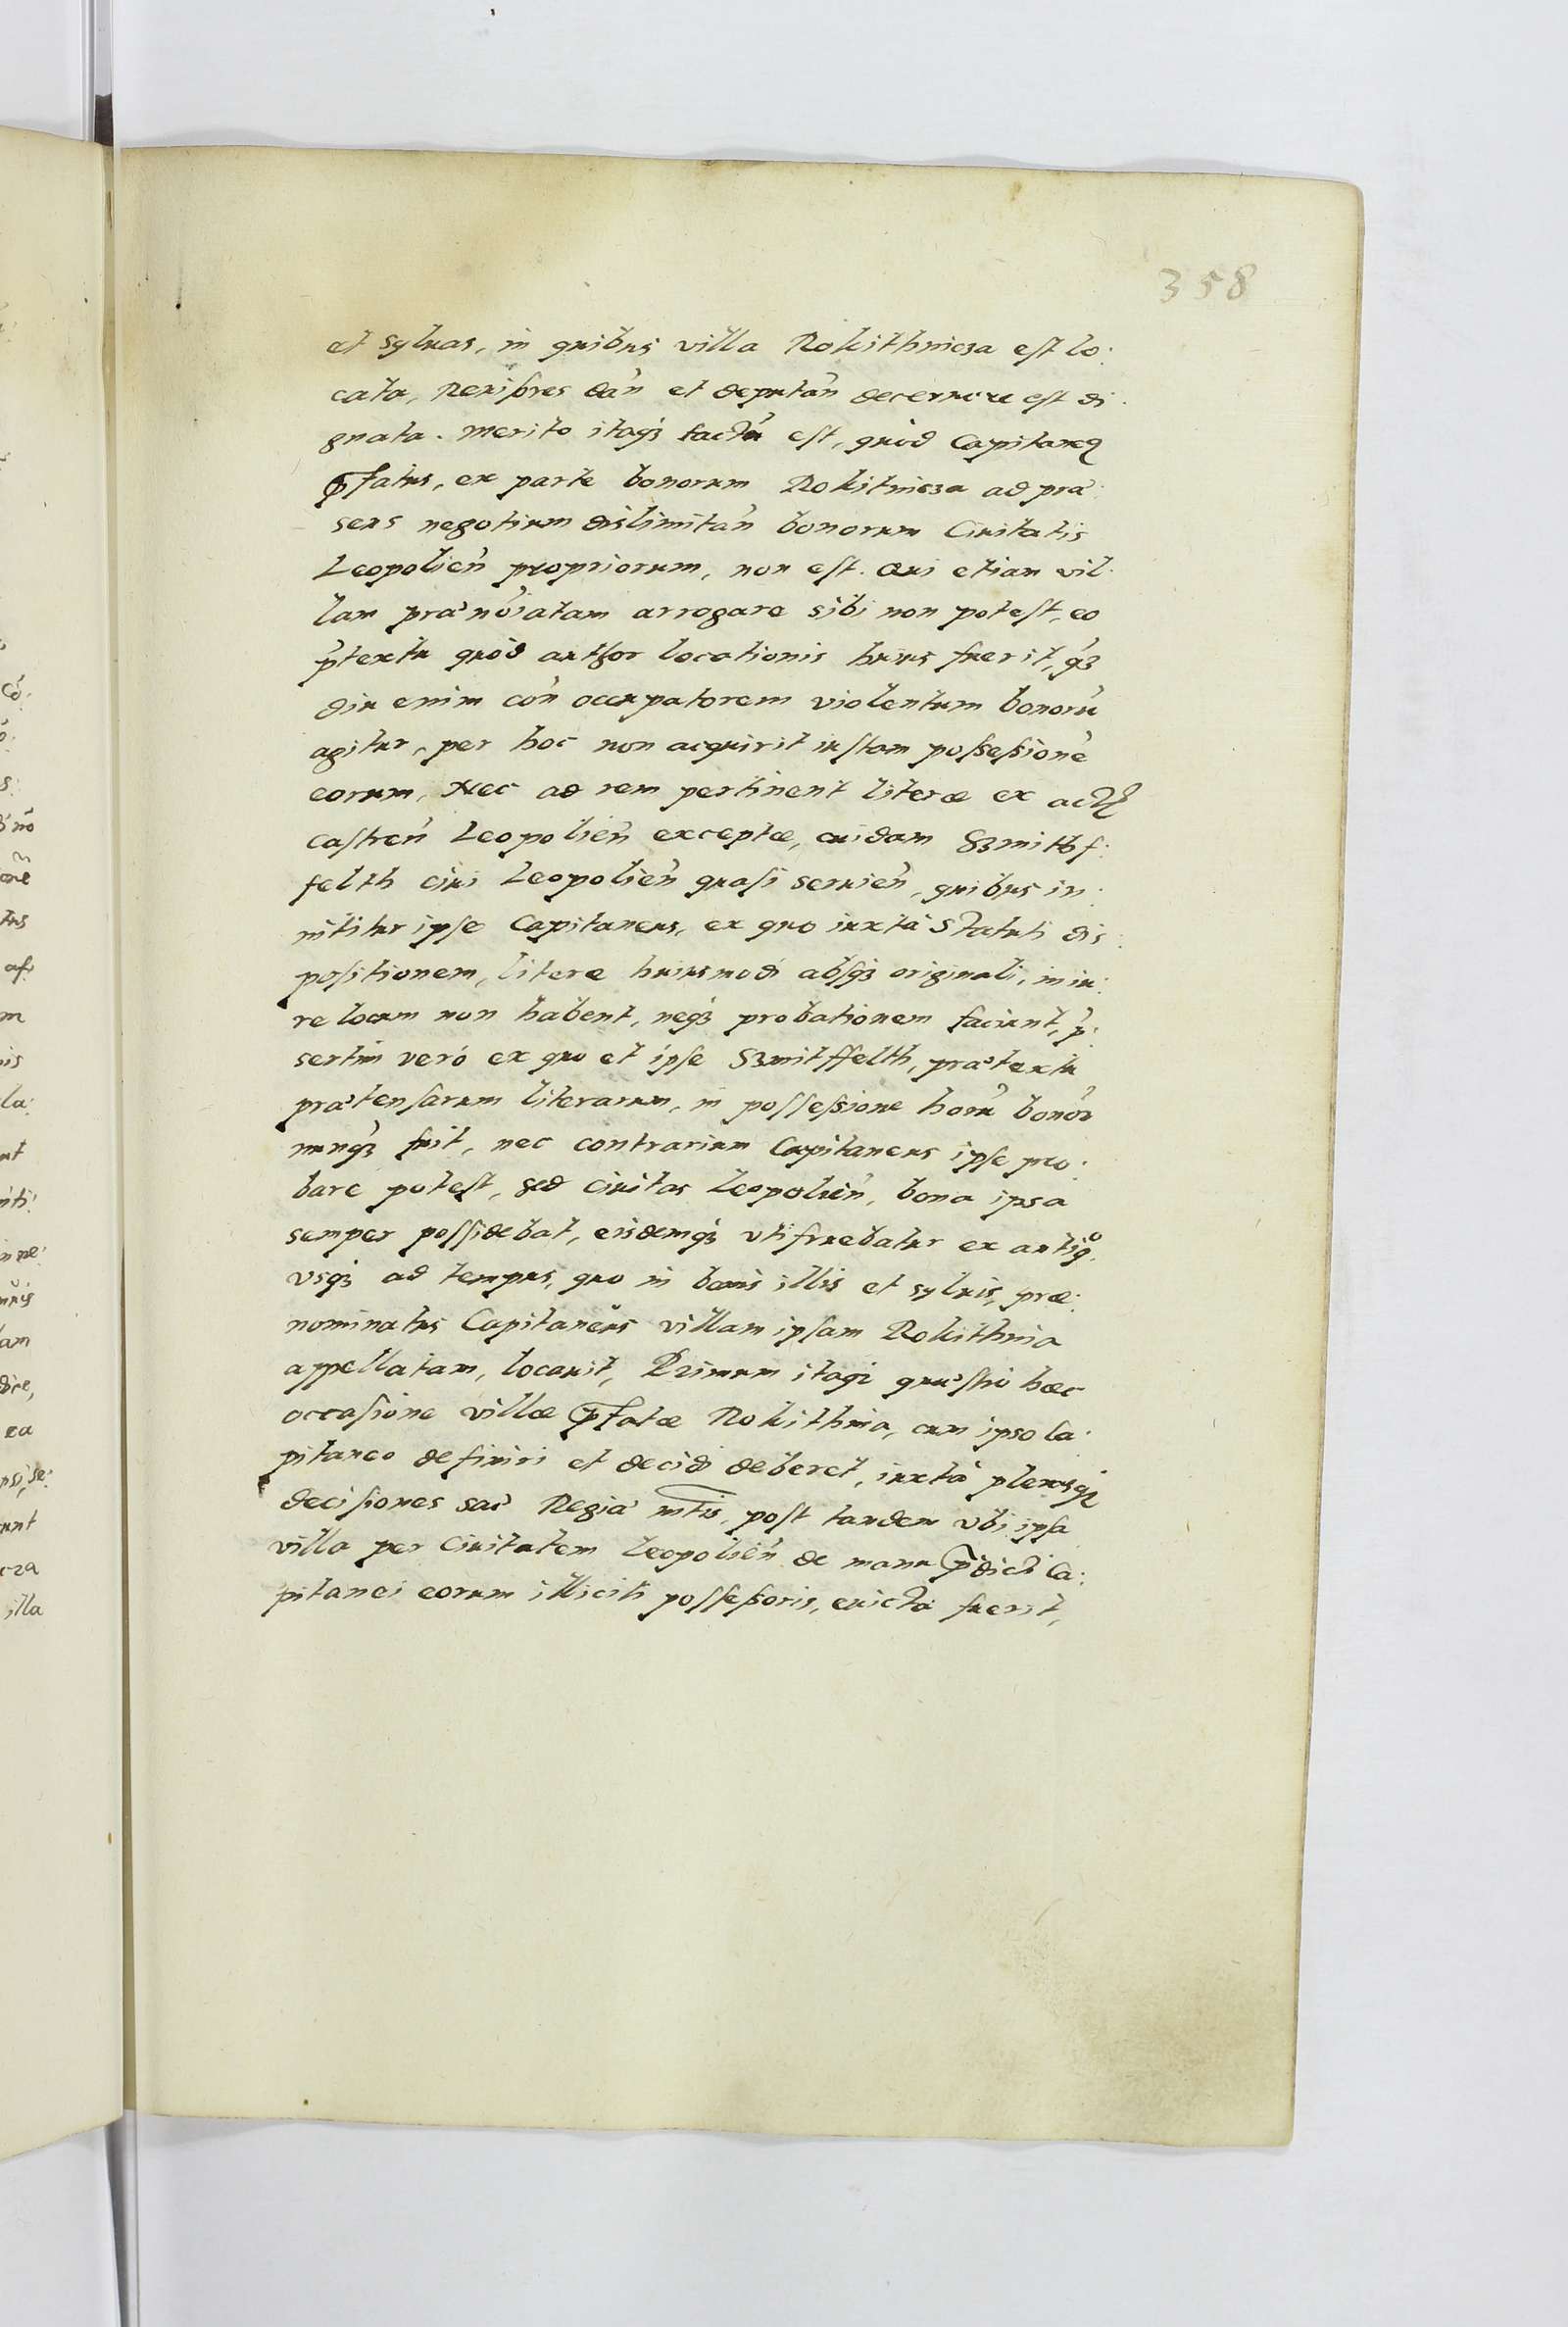 358
et syluas, in quibus villa Rokithnicza est lo:
cata, Reuisores dan̄ et deputan̄ decernere est di:
gnata. Merito itaq₃ factū est, quòd Capitaneꝰ
p̄fatus, ex parte bonorum Rokitnicza ad præ:
sens negotium dislimitan̄ bonorum Ciuitatis
Leopolien̄ propriorum, non est. Qui etiam vil:
lam prænoīatam arrogare sibi non potest, eo
p̄textu quòd author locationis huius fuerit, q̄₃
diu enim con̄ occupatorem violentum bonorū
agitur, per hoc non acquirit iustam possessionē
eorum, Nec ad rem pertinent literæ ex actꝭ
castren̄ Leopolien̄ exceptæ, cuidam Szmithf:
felth ciui Leopolien̄ quasi seruien̄, quibus in:
nititur ipse Capitaneus, ex quo iuxtà Statuti dis:
positionem, literæ huiusmodi absq₃ originali, in iu:
re locum non habent, neq₃ probationem faciunt, p̄:
sertim verò ex quo et ipse Szmitffelth, prætextu
prætensarum literarum, in possessione horū bonoꝝ
nunq̄₃ fuit, nec contrarium Capitaneus ipse pro:
bare potest, sed ciuitas Leopolien̄, bona ipsa
semper possidebat, eisdemq₃ vtifruebatur ex antiqº,
vsq₃ ad tempus, quo in bonis illis et syluis, præ:
nominatus Capitaneus villam ipsam Rokithnia
appellatam, locauit, Primum itaq₃ quæstio hæc
occasione villæ p̄fatæ Rokithnia, cum ipso Ca:
pitaneo definiri et decidi deberet, iuxtà plerasq₃
decisiones sac̄ Regiæ mtis, post tandem vbi ipsa
villa per Ciuitatem Leopolien̄ de manu p̄dicti Ca:
pitanei eorum illiciti possessoris, euicta fuerit,